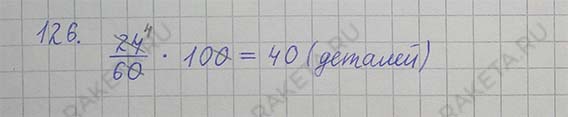 126. 24⁴/60 · 100 = 40 (деталей)
RAKETA.RU
RAKETA.RU
RAKETA.RU
RAKETA.RU